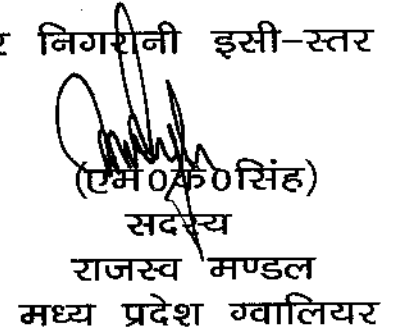 निगरानी इसी-स्तर
(एम0के0सिंह)
सदस्य
राजस्व मण्डल
मध्य प्रदेश ग्वालियर